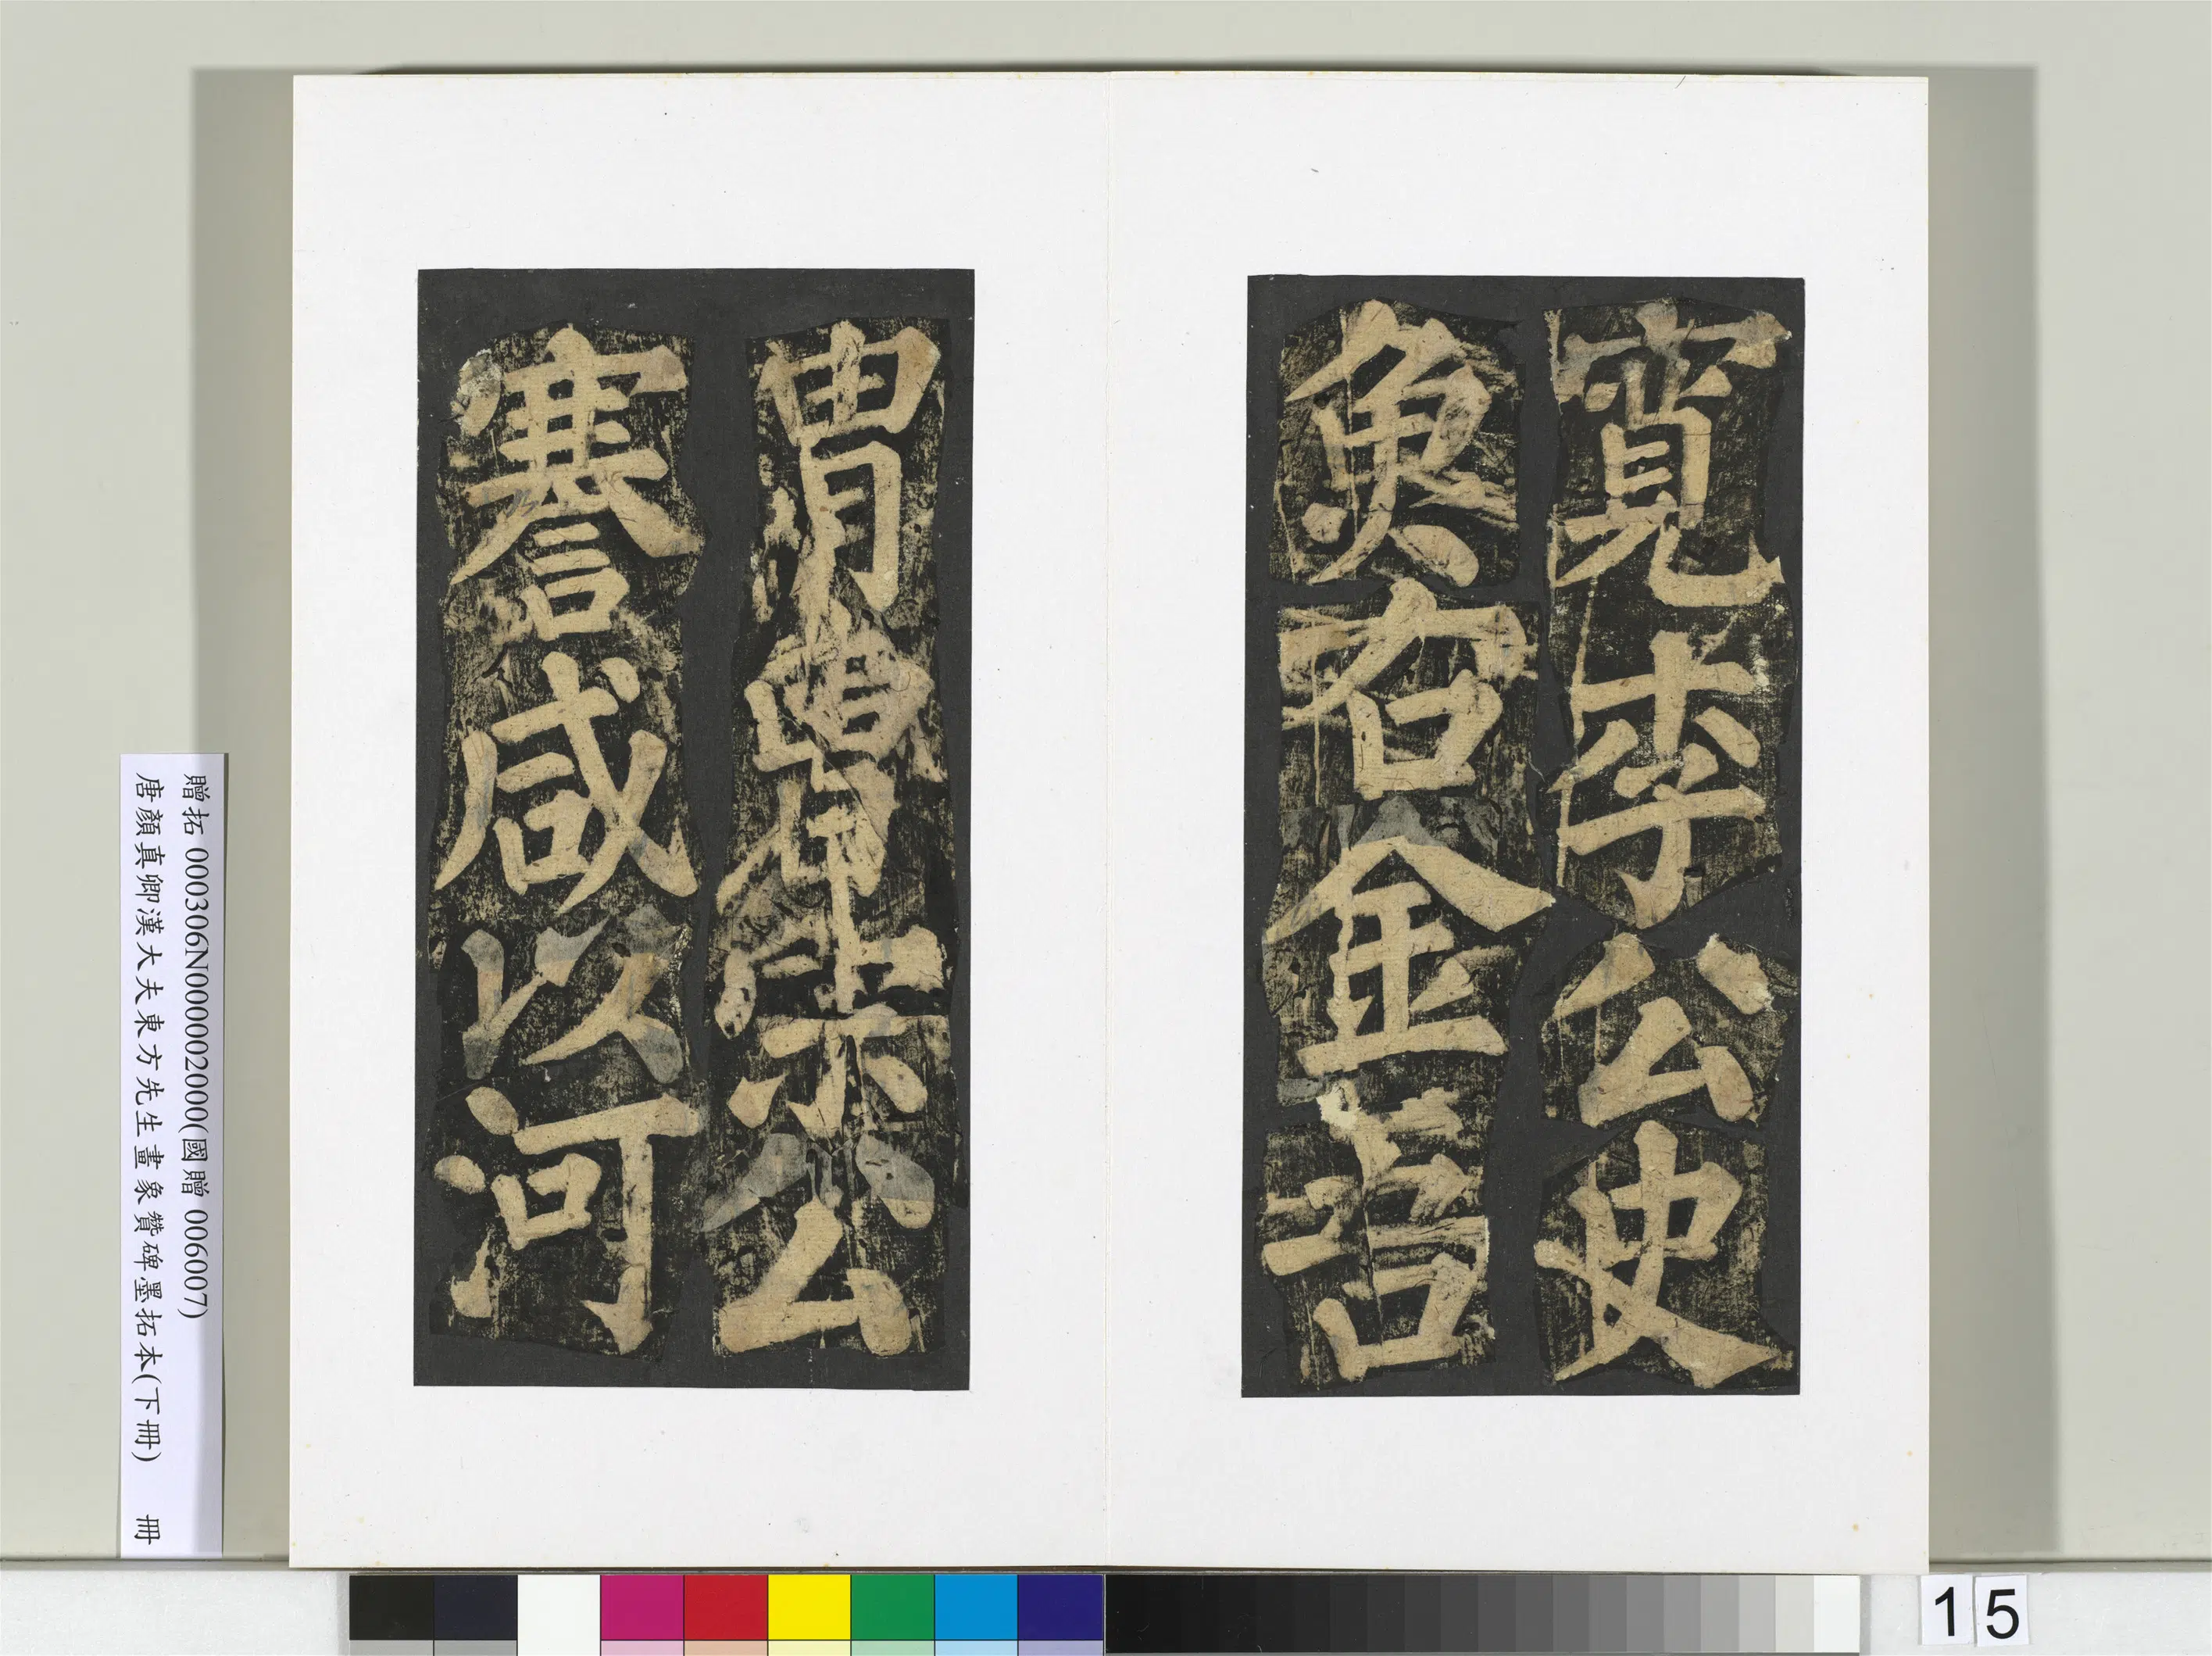 寬李公史
魚右金吾
胄曹宋公
謇咸以河
贈拓 000306N000002000(國贈 006007)
唐顏真卿漢大夫東方先生畫象贊碑墨拓本(下冊) 冊
15